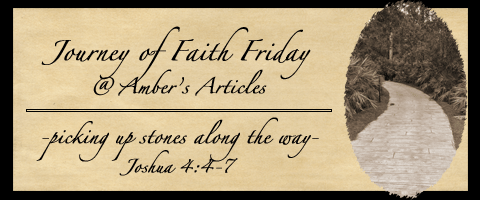 Journey of Faith Friday
@ Amber's Articles
-picking up stones along the way-
Joshua 4:4-7